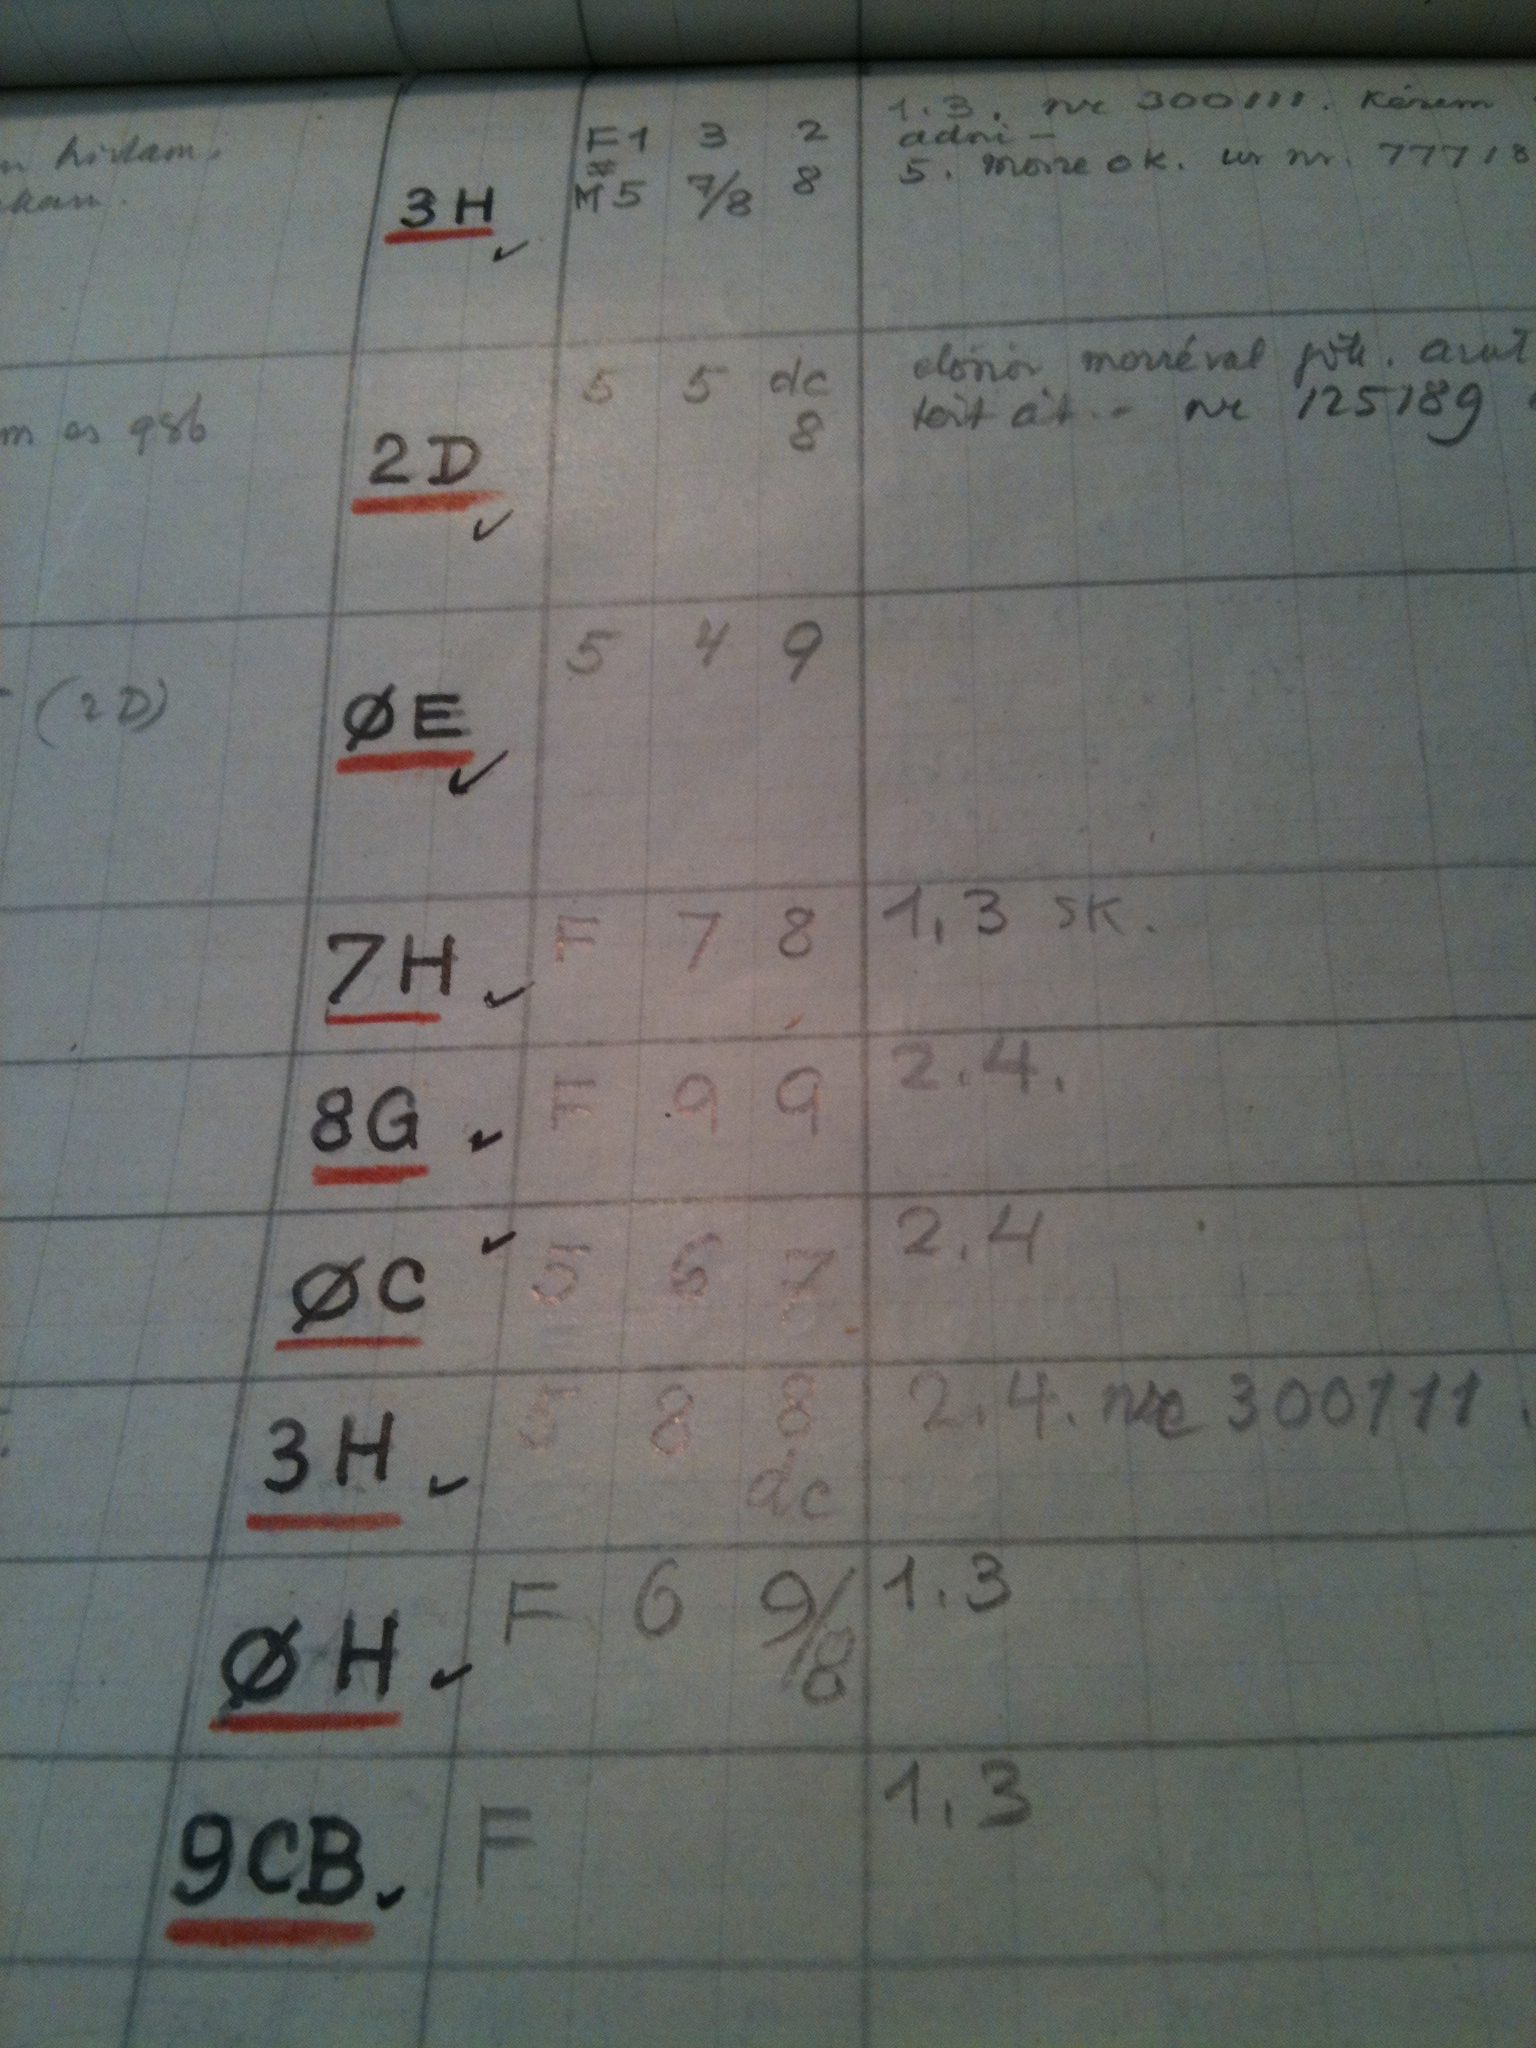 1.3. nr 300111. Kérem
F1 3 2 adni -
5. morse ok. ur nr. 77718
M5 7/8 8
3H ✓
5 5 dc morséval jött.
8 át. - nr 125189
m as qsb
2D ✓
5 4 9
(2D) ØE ✓
7H ✓ F 7 8 1,3 sk.
8G ✓ F 9 9 2.4.
ØC ✓ 5 6 7 2.4
3H ✓ 5 8 8 2.4. nr 300111.
dc
ØH ✓ F 6 9/8 1.3
9CB ✓ F 1.3